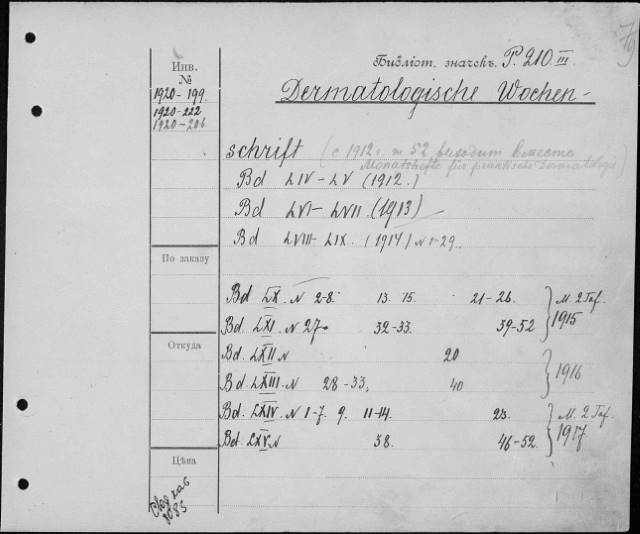 79
Библіот. значекъ P. 210 III
Инв.
№
1920-199.
1920-222
1920-206
Dermatologische Wochen-
schrift (с 1912 г. т 52 выходит вместо
Monatshefte für praktische Dermatologie)
Bd LIV-LV (1912.)
Bd LVI-LVII (1913)
Bd LVIII-LIX. (1914) N 1-29.
По заказу
Bd LX. N 2-8. 13. 15. 21-26. M. 2 Taf.
Bd. LXI. N 27. 32-33. 39-52 1915
Откуда
Bd. LXII N 20
1916
Bd. LXIII. N 28-33, 40
Bd. LXIV. N 1-7. 9. 11-14. 23. M. 2 Taf.
Bd. LXV. N 38. 46-52. 1917
Цѣна